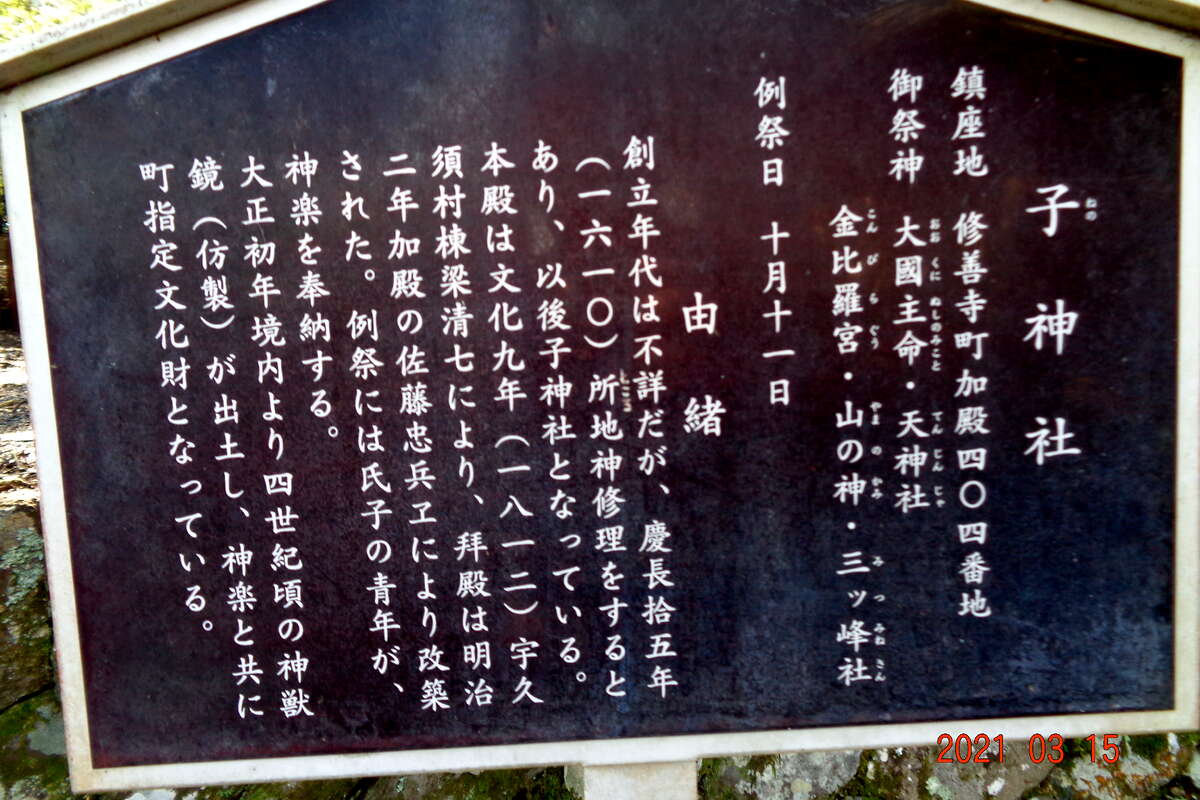 子神社
ねの
鎮座地 修善寺町加殿四〇四番地
御祭神 大國主命・天神社
おおくにぬしのみこと てんじんじゃ
金比羅宮・山の神・三ッ峰社
こんぴらぐう やまのかみ みつみねさん
例祭日 十月十一日
由緒
創立年代は不詳だが、慶長拾五年
(一六一〇)所地神修理をすると
ところ
あり、以後子神社となっている。
本殿は文化九年(一八一二)宇久
須村棟梁清七により、拜殿は明治
二年加殿の佐藤忠兵ヱにより改築
された。例祭には氏子の青年が、
神楽を奉納する。
大正初年境内より四世紀頃の神獣
鏡(仿製)が出土し、神楽と共に
町指定文化財となっている。
2021 03 15